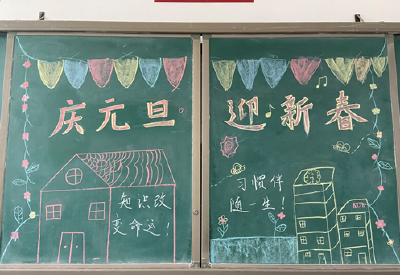 庆元旦
迎新春
知识改
变命运！
习惯伴
随一生！